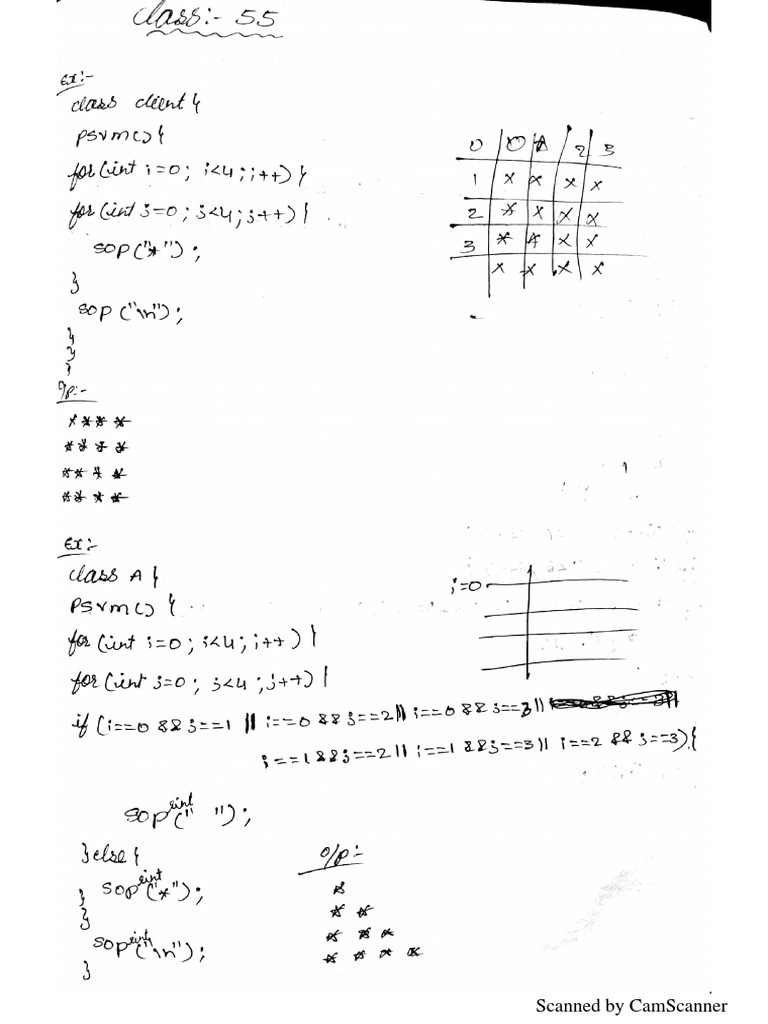 class:- 55
Ex:-
class client{
psvm(){
for(int i=0; i<4; i++){
for(int j=0; j<4; j++){
sop("*");
}
sop("\n");
}
}
}
O/p:-
* * * *
* * * *
* * * *
* * * *
0 0 1 2 3
1 x x x x
2 x x x x
3 x x x x
x x x x
Ex:-
class A{
psvm(){
for(int i=0; i<4; i++){
for(int j=0; j<4; j++){
if (i==0 && j==1 || i==0 && j==2 || i==0 && j==3 ||
i==1 && j==2 || i==1 && j==3 || i==2 && j==3){
soprint(" ");
}else{
} soprint("*");
}
soprint("\n");
}
i=0
O/p:-
*
* *
* * *
* * * *
Scanned by CamScanner